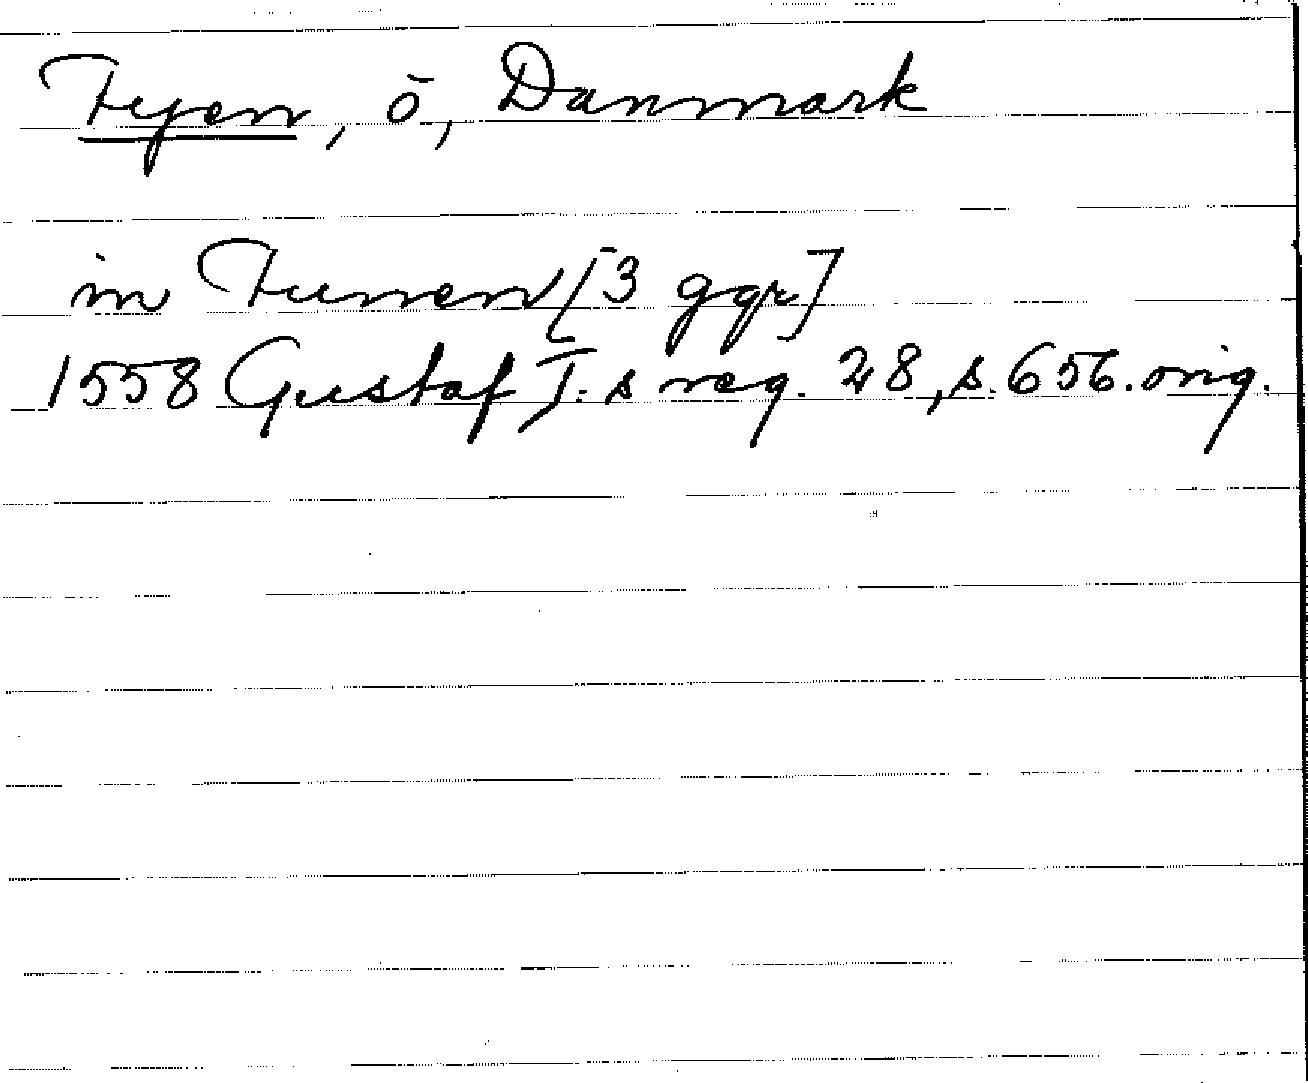 Fyen, ö, Danmark
in Funen [3 ggr]
1558 Gustaf I:s reg. 28, s. 656. orig.